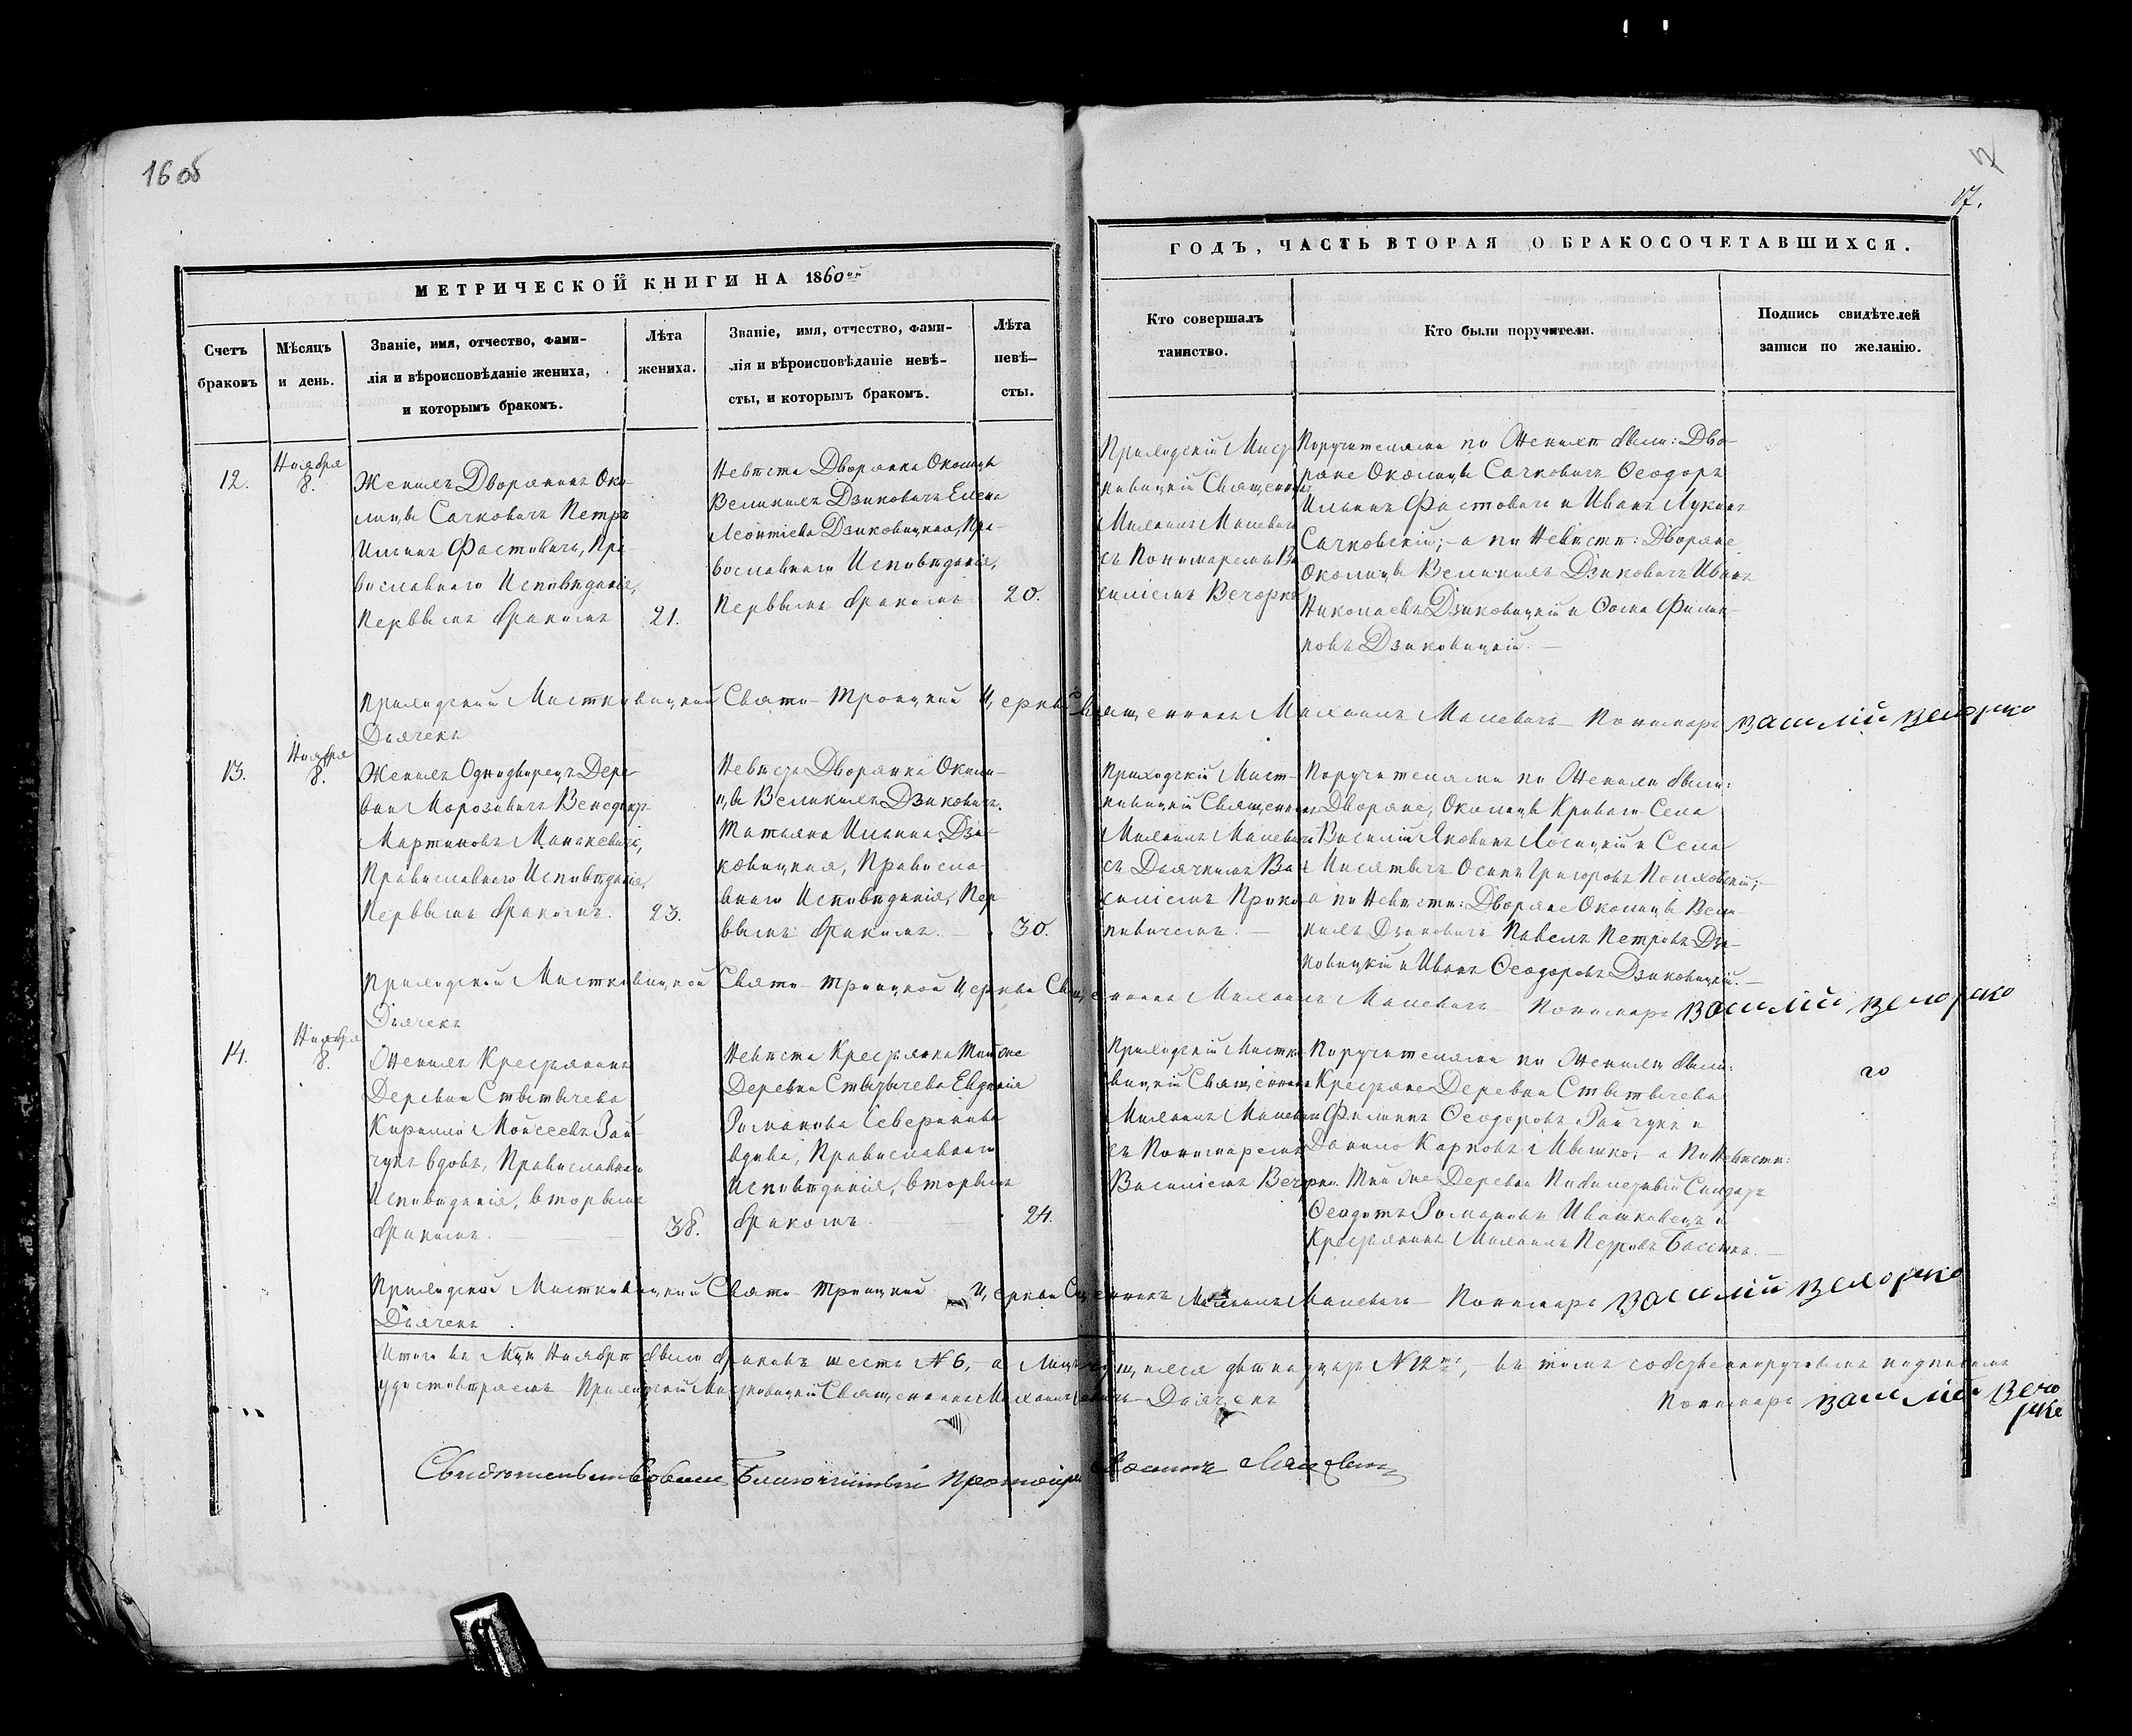 16 об
17.
МЕТРИЧЕСКОЙ КНИГИ НА 1860ой
Счетъ браковъ
Мѣсяцъ и день.
Званіе, имя, отчество, фами-
лія и вѣроисповѣданіе жениха,
и которымъ бракомъ.
Лѣта жениха.
Званіе, имя, отчество, фами-
лія и вѣроисповѣданіе невѣ-
сты, и которымъ бракомъ.
Лѣта невѣ-
сты.
ГОДЪ, ЧАСТЬ ВТОРАЯ О БРАКОСОЧЕТАВШИХСЯ.
Кто совершалъ
таинство.
Кто были поручители.
Подпись свидѣтелей
записи по желанію.
12.
Ноября
8.
Женихъ Дворянинъ Око-
лицы Сачковичъ Петръ
Ильинъ Фастовичъ, Пра-
вославнаго Исповѣданія,
Первымъ бракомъ
21.
Невѣста Дворянка Околицы
Великихъ Дзиковичъ Елена
Леонтіева Дзиковицкая, Пра-
вославнаго Исповѣданія,
Первымъ бракомъ
20.
Приходскій
Священникъ
Михаилъ Малевичъ
съ Пономаремъ Ва-
силіемъ Вечорко
Поручителями по Женихѣ были: Дво-
ряне Околицы Сачковичъ Ѳеодоръ
Ильинъ Фастовичъ и Иванъ Лукинъ
Сачковскій; - а по Невѣстѣ: Дворяне
Околицы Великихъ Дзиковичъ Иванъ
Николаевъ Дзиковицкій и Ѳома Филип-
повъ Дзиковицкій. —
Приходской Мистковицкой Свято-Троицкой Церкви Священникъ Михаилъ Малевичъ Пономарь Василій Вечорко
Дьячекъ
13.
Ноября
8.
Женихъ Однодворецъ Дере-
вни Морозовичъ Венедиктъ
Мартиновъ
Православнаго Исповѣданія,
Первымъ бракомъ.
23.
Невѣста Дворянка Околи-
цы Великихъ Дзиковичъ
Татьяна Ильина Дзи-
ковицкая, Правосла-
внаго Исповѣданія, Пер-
вымъ бракомъ. —
30.
Приходскій Мист-
ковицкій Священникъ
Михаилъ Малевичъ
съ Дьячкомъ Ва-
силіемъ Проко-
повичемъ. —
Поручителями по Женихѣ были:
Дворяне, Околицы Криваго Села
Василій Яковинъ и Села
Осипъ Григоровъ
а по Невѣстѣ: Дворяне Околицы Вели-
кихъ Дзиковичъ Павелъ Петровъ Дзи-
ковицкій и Иванъ Ѳеодоровъ Дзиковицкій. —
Приходской Мистковицкой Свято-Троицкой Церкви Священникъ Михаилъ Малевичъ Пономарь Василій Вечорко
Дьячекъ
14.
Ноября
8.
Женихъ Крестьянинъ
Деревни Стытычева
Кирилло Моисеевъ Зай-
чукъ вдовъ, Православнаго
Исповѣданія, вторымъ
бракомъ.
38.
Невѣста Крестьянка Той же
Деревни Стытычева Евдокія
Романова
вдова, Православнаго
Исповѣданія, вторымъ
бракомъ.
24.
Приходскій Мистко-
вицкій Священникъ
Михаилъ Малевичъ
съ Пономаремъ
Василіемъ Вечорко.
Поручителями по Женихѣ были:
Крестьяне Деревни Стытычева
Филиппъ Ѳеодоровъ Зайчукъ и
Данило Карповъ Мышко; а по Невѣстѣ:
Той же Деревни
Ѳеодотъ Романовъ и
Крестьянинъ Михаилъ Петровъ
Приходской Мистковицкой Свято-Троицкой Церкви Священникъ Михаилъ Малевичъ Пономарь Василій Вечорко
Дьячекъ
Итого въ Мцѣ Ноябрѣ было браковъ шесть № 6, - а двѣнадцать № 12ть, - въ томъ собственноручнымъ подписомъ
удостовѣряемъ Приходскій Мистковицкій Священникъ Михаилъ Дьячекъ Пономарь Василій Вечо
рко
Свидѣтельствовалъ Благочинный Протоіерей